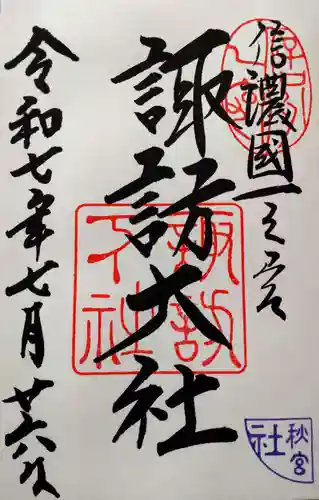 信濃國一之宮
諏訪大社
令和七年七月廿六日
諏訪
下社
秋宮
社